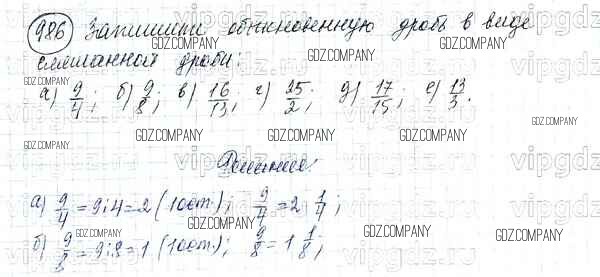 986 Запишите обыкновенную дробь в виде
смешанной дроби:
а) 9/4; б) 9/8; в) 16/13; г) 25/2; д) 17/15; е) 13/3.
Решение:
а) 9/4 = 9:4 = 2 (1 ост.); 9/4 = 2 1/4;
б) 9/8 = 9:8 = 1 (1 ост.); 9/8 = 1 1/8;